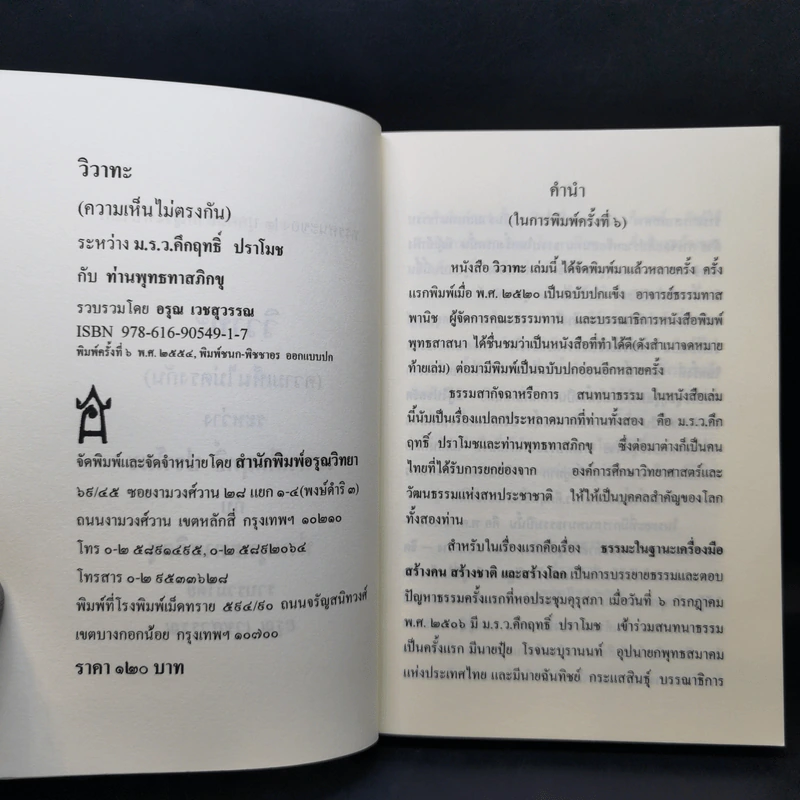 วิวาทะ
(ความเห็นไม่ตรงกัน)
ระหว่าง ม.ร.ว.คึกฤทธิ์ ปราโมช
กับ ท่านพุทธทาสภิกขุ
รวบรวมโดย อรุณ เวชสุวรรณ
ISBN 978-616-90549-1-7
พิมพ์ครั้งที่ ๖ พ.ศ. ๒๕๕๔, พิมพ์ชนก-พิชชาอร ออกแบบปก
จัดพิมพ์และจัดจำหน่ายโดย สำนักพิมพ์อรุณวิทยา
๖๙/๔๕ ซอยงามวงศ์วาน ๒๘ แยก ๑-๔ (พงษ์ดำริ ๓)
ถนนงามวงศ์วาน เขตหลักสี่ กรุงเทพฯ ๑๐๒๑๐
โทร ๐-๒ ๕๘๙๑๔๙๕, ๐-๒ ๕๘๙๒๐๖๔
โทรสาร ๐-๒ ๙๕๓๓๖๒๘
พิมพ์ที่โรงพิมพ์เม็ดทราย ๕๙๔/๙๐ ถนนจรัญสนิทวงศ์
เขตบางกอกน้อย กรุงเทพฯ ๑๐๗๐๐
ราคา ๑๒๐ บาท
คำนำ
(ในการพิมพ์ครั้งที่ ๖)
หนังสือ วิวาทะ เล่มนี้ ได้จัดพิมพ์มาแล้วหลายครั้ง ครั้ง
แรกพิมพ์เมื่อ พ.ศ. ๒๕๒๐ เป็นฉบับปกแข็ง อาจารย์ธรรมทาส
พานิช ผู้จัดการคณะธรรมทาน และบรรณาธิการหนังสือพิมพ์
พุทธสาสนา ได้ชื่นชมว่าเป็นหนังสือที่ทำได้ดี(ดังสำเนาจดหมาย
ท้ายเล่ม) ต่อมามีพิมพ์เป็นฉบับปกอ่อนอีกหลายครั้ง
ธรรมสากัจฉาหรือการ สนทนาธรรม ในหนังสือเล่ม
นี้นับเป็นเรื่องแปลกประหลาดมากที่ท่านทั้งสอง คือ ม.ร.ว.คึก
ฤทธิ์ ปราโมชและท่านพุทธทาสภิกขุ ซึ่งต่อมาต่างก็เป็นคน
ไทยที่ได้รับการยกย่องจาก องค์การศึกษาวิทยาศาสตร์และ
วัฒนธรรมแห่งสหประชาชาติ ให้ให้เป็นบุคคลสำคัญของโลก
ทั้งสองท่าน
สำหรับในเรื่องแรกคือเรื่อง ธรรมะในฐานะเครื่องมือ
สร้างคน สร้างชาติ และสร้างโลก เป็นการบรรยายธรรมและตอบ
ปัญหาธรรมครั้งแรกที่หอประชุมคุรุสภา เมื่อวันที่ ๖ กรกฎาคม
พ.ศ. ๒๕๐๖ มี ม.ร.ว.คึกฤทธิ์ ปราโมช เข้าร่วมสนทนาธรรม
เป็นครั้งแรก มีนายปุ๋ย โรจนะบุรานนท์ อุปนายกพุทธสมาคม
แห่งประเทศไทย และมีนายฉันทิชย์ กระแสสินธุ์ บรรณาธิการ